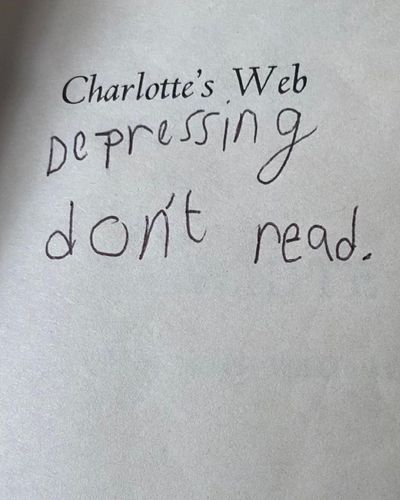 Charlotte's Web
Depressing
don't read.